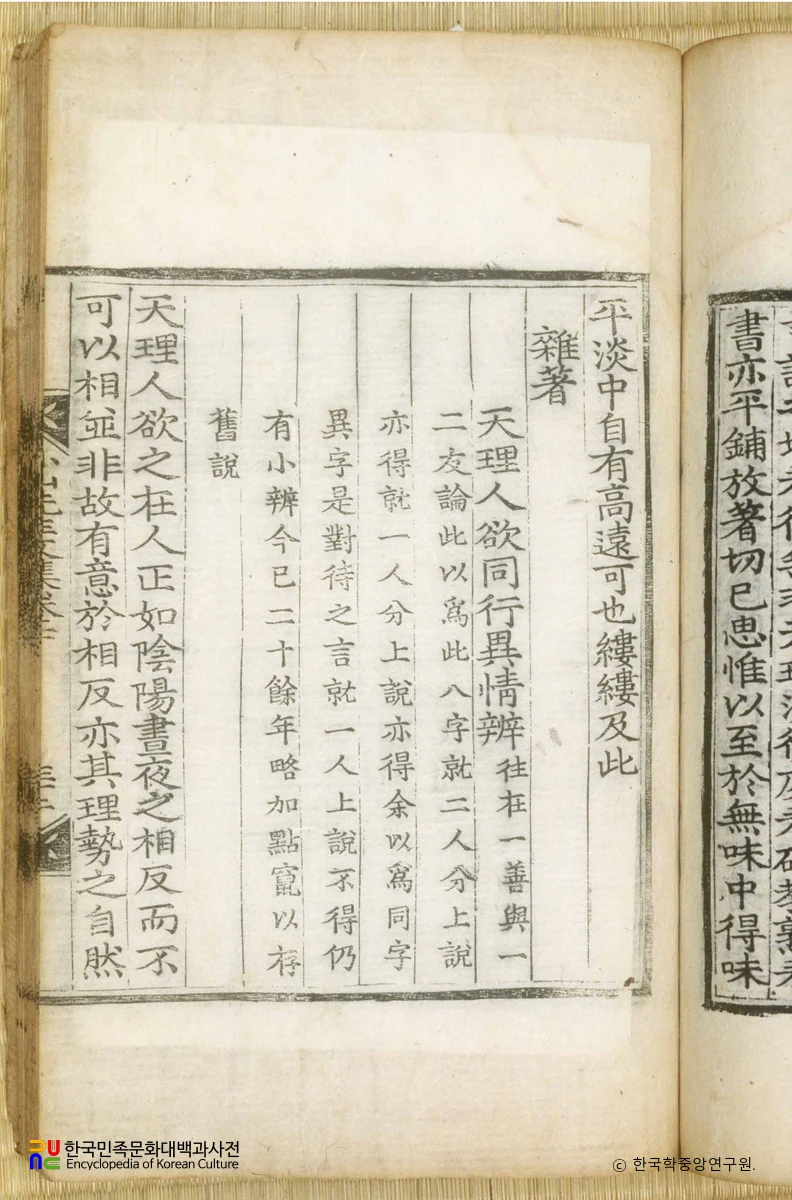 書亦平鋪放著切已思惟以至於無味中得味
平淡中自有高遠可也縷縷及此
雜著
天理人欲同行異情辨 往在一善與一
二友論此以爲此八字就二人分上說
亦得就一人分上說亦得余以爲同字
異字是對待之言就一人上說不得仍
有小辨今已二十餘年略加點竄以存
舊說
天理人欲之在人正如陰陽晝夜之相反而不
可以相並非故有意於相反亦其理勢之自然
한국민족문화대백과사전
Encyclopedia of Korean Culture
© 한국학중앙연구원.